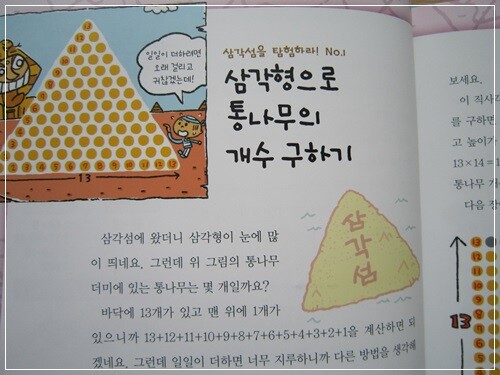 일일이 더하려면
오래 걸리고
귀찮겠는데!
13
삼각섬을 탐험하라! No.1
삼각형으로
통나무의
개수 구하기
삼각섬
삼각섬에 왔더니 삼각형이 눈에 많
이 띄네요. 그런데 위 그림의 통나무
더미에 있는 통나무는 몇 개일까요?
바닥에 13개가 있고 맨 위에 1개가
있으니까 13+12+11+10+9+8+7+6+5+4+3+2+1을 계산하면 되
겠네요. 그런데 일일이 더하면 너무 지루하니까 다른 방법을 생각해
보세요.
이 직사각
를 구하면
고 높이가
13×14=1
통나무 개
다음 장
13